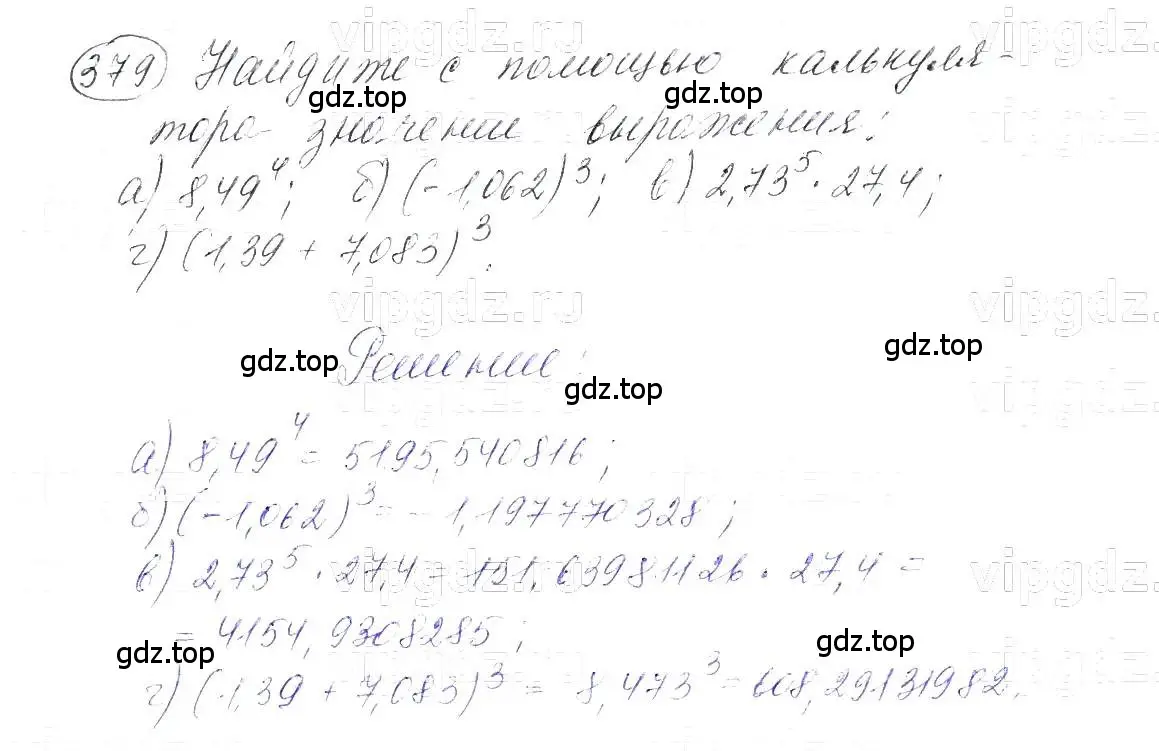 vipgdz.ru
379 Найдите с помощью калькуля-
gdz.top
gdz.top
тора значение выражения:
а) 8,49⁴; б) (-1,062)³; в) 2,73⁵ · 27,4;
г) (1,39 + 7,083)³.
vipgdz.ru
vipgdz.ru
gdz.top
Решение:
gdz.top
gdz.top
а) 8,49⁴ = 5195,540816;
б) (-1,062)³ = -1,197770328;
в) 2,73⁵ · 27,4 = 151,63981126 · 27,4 =
vipgdz.ru
vipgdz.ru
= 4154,9308285;
gdz.top
gdz.top
г) (1,39 + 7,083)³ = 8,473³ = 608,29131982.